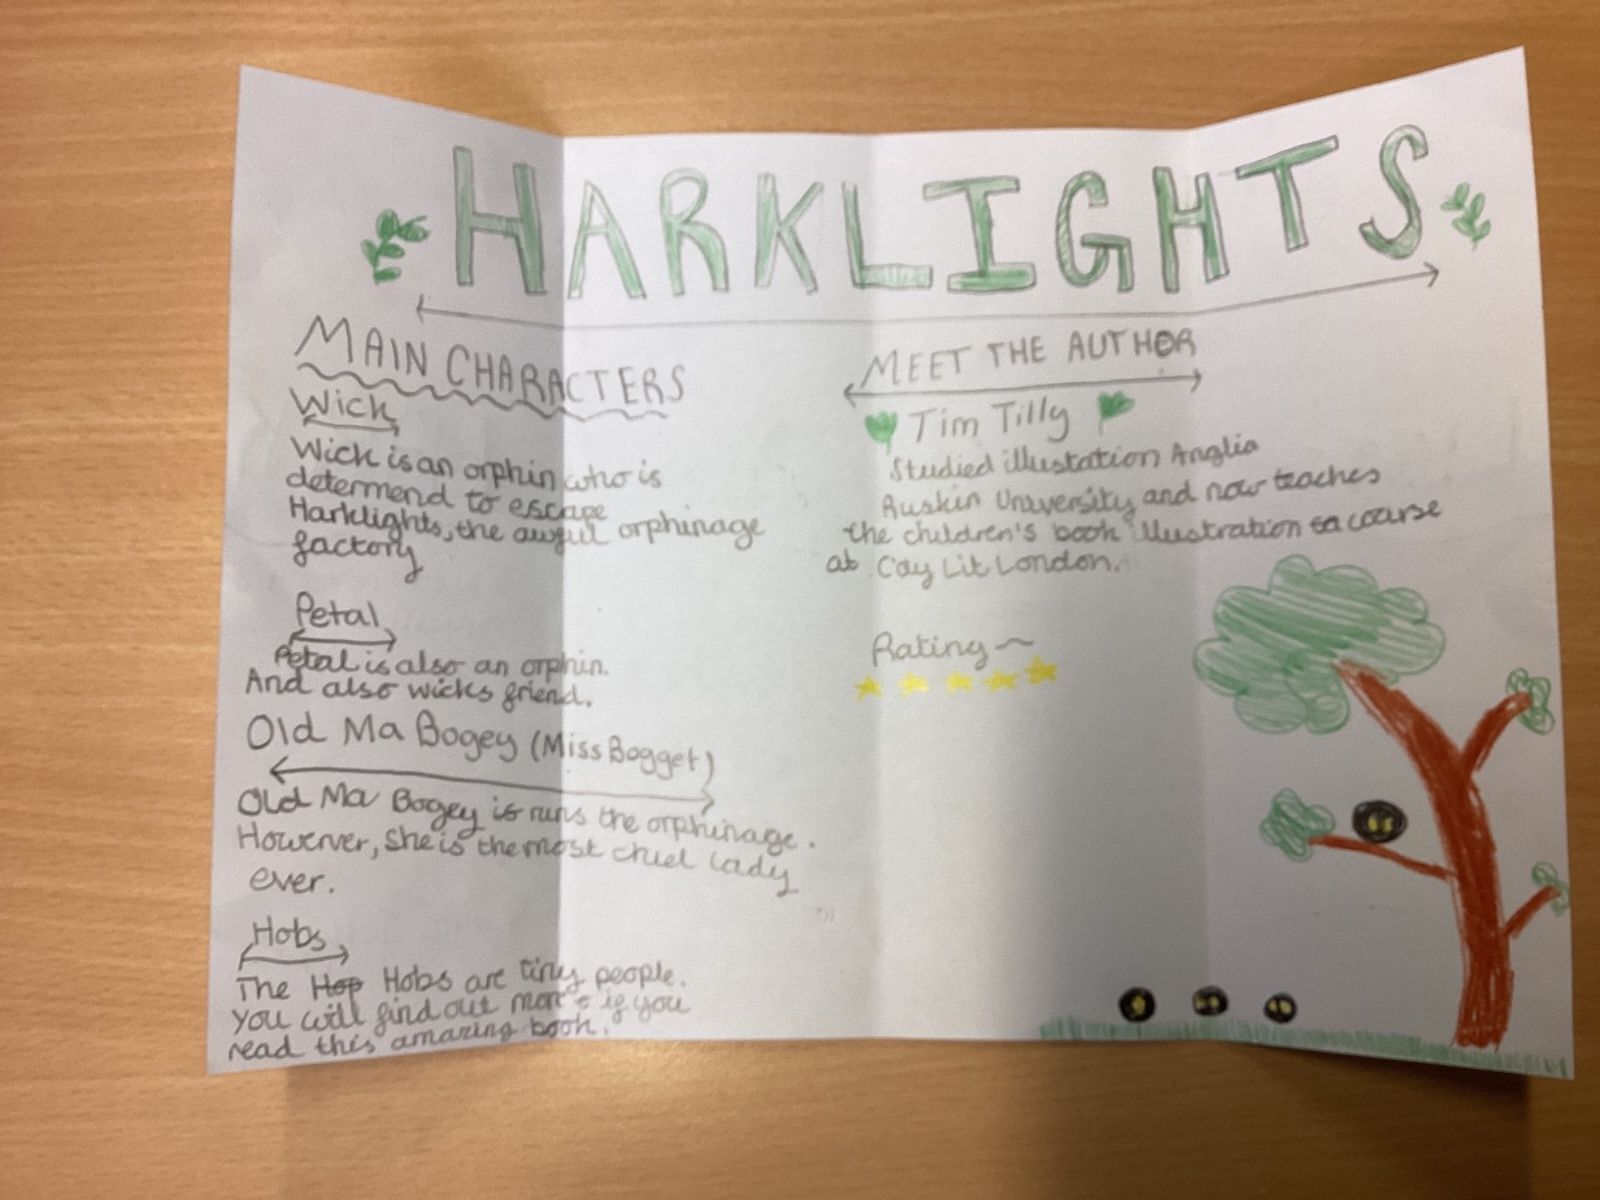 HARKLIGHTS
MAIN CHARACTERS
Wick
Wick is an orphin who is
determend to escape
Harklights, the awful orphinage
factory
Petal
Petal is also an orphin.
And also wicks friend.
Old Ma Bogey (Miss Bogget)
Old Ma Bogey is runs the orphinage.
Howerver, she is the most chuel lady
ever.
Hobs
The Hop Hobs are tiny people.
You will find out more if you
read this amazing book.
MEET THE AUTHOR
Tim Tilly
Studied illustation Anglia
Ruskin University and now teaches
the children's book illustration course
at Cay Lit London.
Rating~